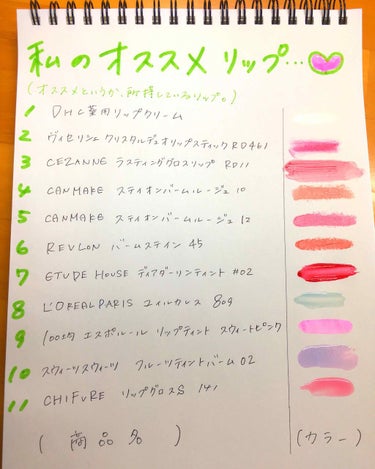 私のオススメリップ…
(オススメというか、所得しているリップ。)
1 DHC薬用リップクリーム
2 ヴィセリシェ クリスタルデュオリップスティック RD461
3 CEZANNE ラスティンググロスリップ RD11
4 CANMAKE ステイオンバームルージュ 10
5 CANMAKE ステイオンバームルージュ 12
6 REVLON バームステイン 45
7 ETUDE HOUSE ディアダーリンティント #02
8 L'OREAL PARIS エイルカレス 809
9 100均 エスポルール リップティント スウィートピンク
10 スウィーツスウィーツ フルーツティントバーム 02
11 CHIFURE リップグロスS 141
(商品名) (カラー)